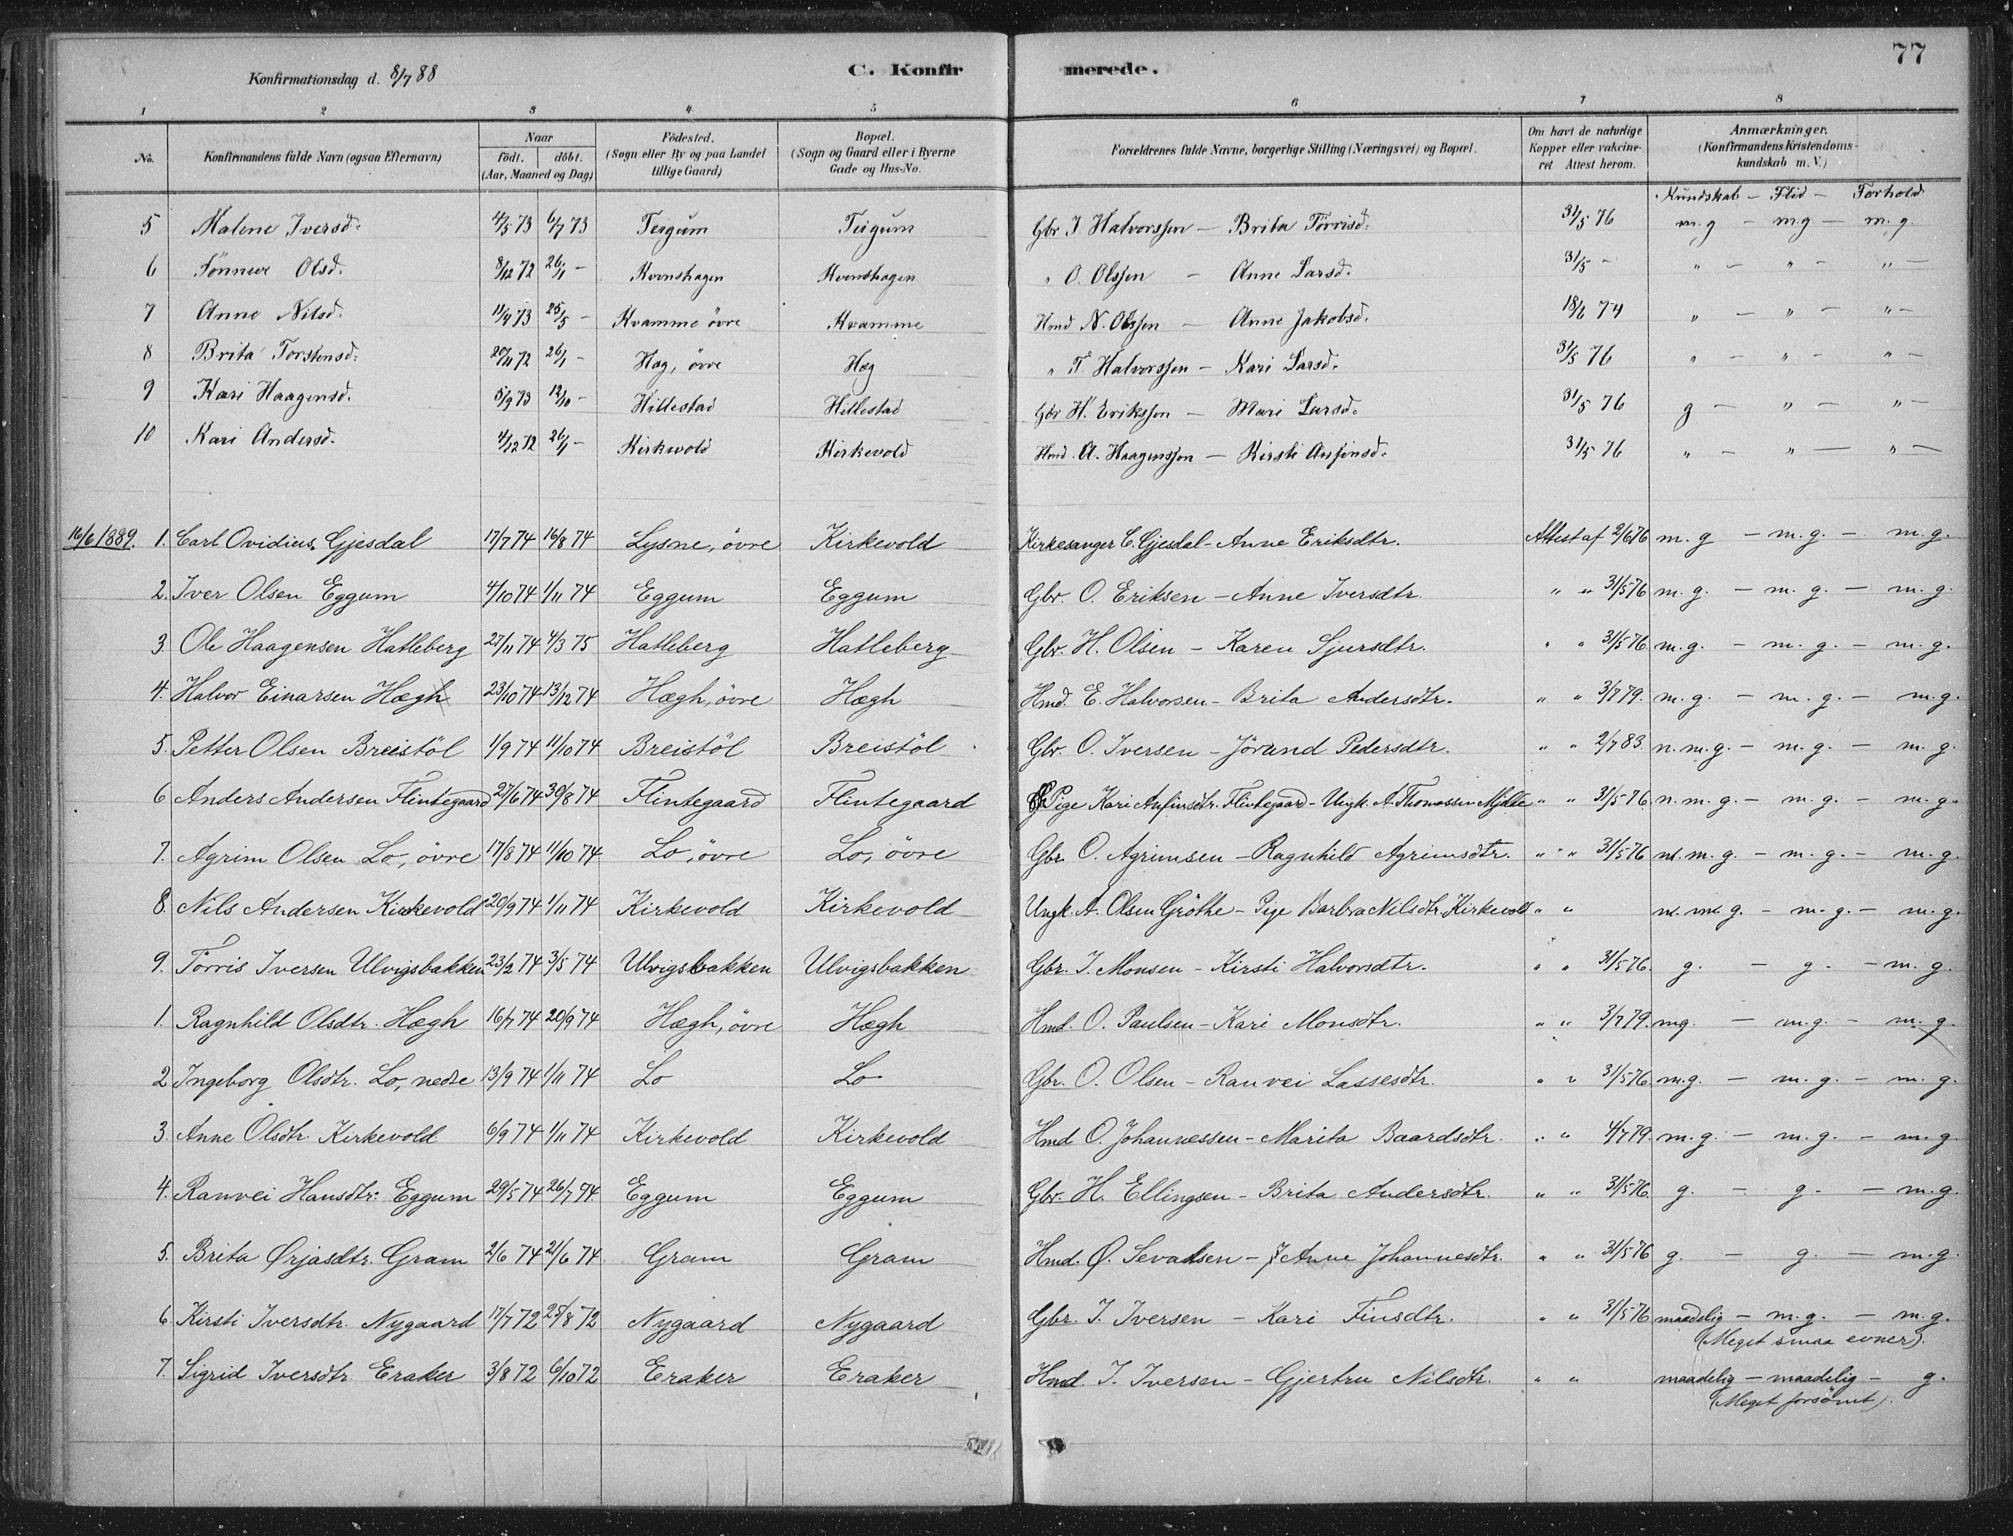 77
Konfirmationsdag d. 8/7 88
C. Konfirmerede.
1 2 3 4 5 6 7 8
No. Konfirmandens fulde Navn (ogsaa Efternavn) Naar födt. döbt. (Aar, Maaned og Dag) Födested. (Sogn eller By og paa Landet tillige Gaard) Bopæl. (Sogn og Gaard eller i Byerne Gade og Hus-No. Forældrenes fulde Navne, borgerlige Stilling (Næringsvei) og Bopæl. Om havt de naturlige Kopper eller vakcineret Attest herom. Anmærkninger. (Konfirmandens Kristendomskundskab m. V.)
Kundskab – Flid – Forhold
5 Malene Iversd. 4/5 73 6/7 73 Teigum Teigum Gbr I Halvorssen – Brita Törrisd. 31/5 76 m.g – m.g – m.g.
6 Sönneve Olsd. 8/12 72 26/1 – Kvenshagen Kvenshagen " O. Olssen – Anne Larsd. 31/5 – " – " – " –
7 Anne Nilsd. 11/4 73 25/5 – Kvamme övre Kvamme Hmd N. Olssen – Anne Jakobsd. 18/6 74 " – " – " –
8 Brita Torstensd. 20/11 72 26/1 – Hæg, övre Hæg " T Halvorssen – Kari Larsd. 31/5 76 " – " – " –
9 Kari Haagensd. 5/9 73 12/10 – Hillestad Hillestad Gbr H. Erikssen – Mari Larsd. 31/5 76 g – " – " –
10 Kari Andersd. 4/12 72 26/1 – Kirkevold Kirkevold Hmd. A. Haagenssen – Kirsti Ansfinsd. 31/5 76 " – " – " –
16/6 1889. 1. Carl Ovidius Gjesdal 17/7 74 16/8 74 Lysne, övre Kirkevold Kirkesanger C. Gjesdal – Anne Eriksdtr. Attest af 2/6 76 m. g – m. g. – m. g.
2. Iver Olsen Eggum 4/10 74 1/11 74 Eggum Eggum Gbr. O. Eriksen – Anne Iversdtr. " " 31/5 76 m. g. – m. g. – m. g.
3. Ole Haagensen Hatleberg 27/11 74 4/3 75 Hatleberg Hatleberg Gbr. H. Olsen – Karen Sjursdtr. " " 31/5 76 m. g. – m. g. – m. g.
4. Halvor Einarsen Hægh 23/10 74 13/12 74 Hægh, övre Hægh Hmd. E. Halvorsen – Brita Andersdtr. " " 3/7 79. m. g. – m. g. – m. g.
5. Petter Olsen Breistöl 1/9 74 11/10 74 Breistöl Breistöl Gbr. O. Iversen – Jörand Pedersdtr. " " 2/7 83. n. m. g. – m. g. – m. g.
6 Anders Andersen Flintegaard 27/6 74 30/8 74 Flintegaard Flintegaard Pige Kari Anfinsdtr. Flintegaard – Ungk. A. Thomassen Mjelde " " 31/5 76. n. m. g. – m. g. – m. g.
7. Agrim Olsen Lo, övre 17/8 74 11/10 74 Lo, övre Lo, övre Gbr. O. Agrimsen – Ragnhild Agrimsdtr. " " 31/5 76 n. m. g. – m. g. – m. g.
8. Nils Andersen Kirkevold 20/9 74 1/11 74 Kirkevold Kirkevold Ungk. A. Olsen Gröthe – Pige Barbra Nilsdtr. Kirkevold " " n. m. g. – m. g. – m. g.
9. Törris Iversen Ulvigsbakken 23/2 74 3/5 74 Ulvigsbakken Ulvigsbakken Gbr. I. Monsen – Kirsti Halvorsdtr. " " 31/5 76. g. – g. – m. g.
1. Ragnhild Olsdtr. Hægh 16/7 74 20/9 74 Hægh, övre Hægh Hmd. O. Paulsen – Kari Monsdtr. " " 3/7 79. m g. – m. g. – m. g.
2 Ingeborg Olsdtr. Lo, nedre 13/9 74 1/11 74 Lo Lo Gbr. O. Olsen – Ranvei Lassesdtr. " " 31/5 76. m. g. – m. g. – m. g.
3. Anne Olsdtr. Kirkevold 6/9 74 1/11 74 Kirkevold Kirkevold Hmd O. Johannessen – Marita Baardsdtr. " " 4/7 79. m. g. – m. g. – m. g.
4. Ranvei Hansdtr. Eggum 29/5 74 26/7 74 Eggum Eggum Gbr. H. Ellingsen – Brita Andersdtr. " " 31/5 76. g. – g. – m. g.
5. Brita Ørjasdtr. Gram 2/6 74 21/6 74 Gram Gram Hmd. Ø. Sevaldsen – Anne Johannesdtr. " " 31/5 76 g. – g. – m. g.
6. Kirsti Iversdtr. Nygaard 17/7 72 25/8 72 Nygaard Nygaard Gbr. I. Iversen – Kari Finsdtr. " " 31/5 76 maadelig – m. g. – m. g.
(Meget smaa evner).
7. Sigrid Iversdtr Eraker 3/8 72 6/10 72 Eraker Eraker Hmd. I. Iversen – Gjertru Nilsdtr. " " maadelig – maadelig – g.
(Meget forsömt).